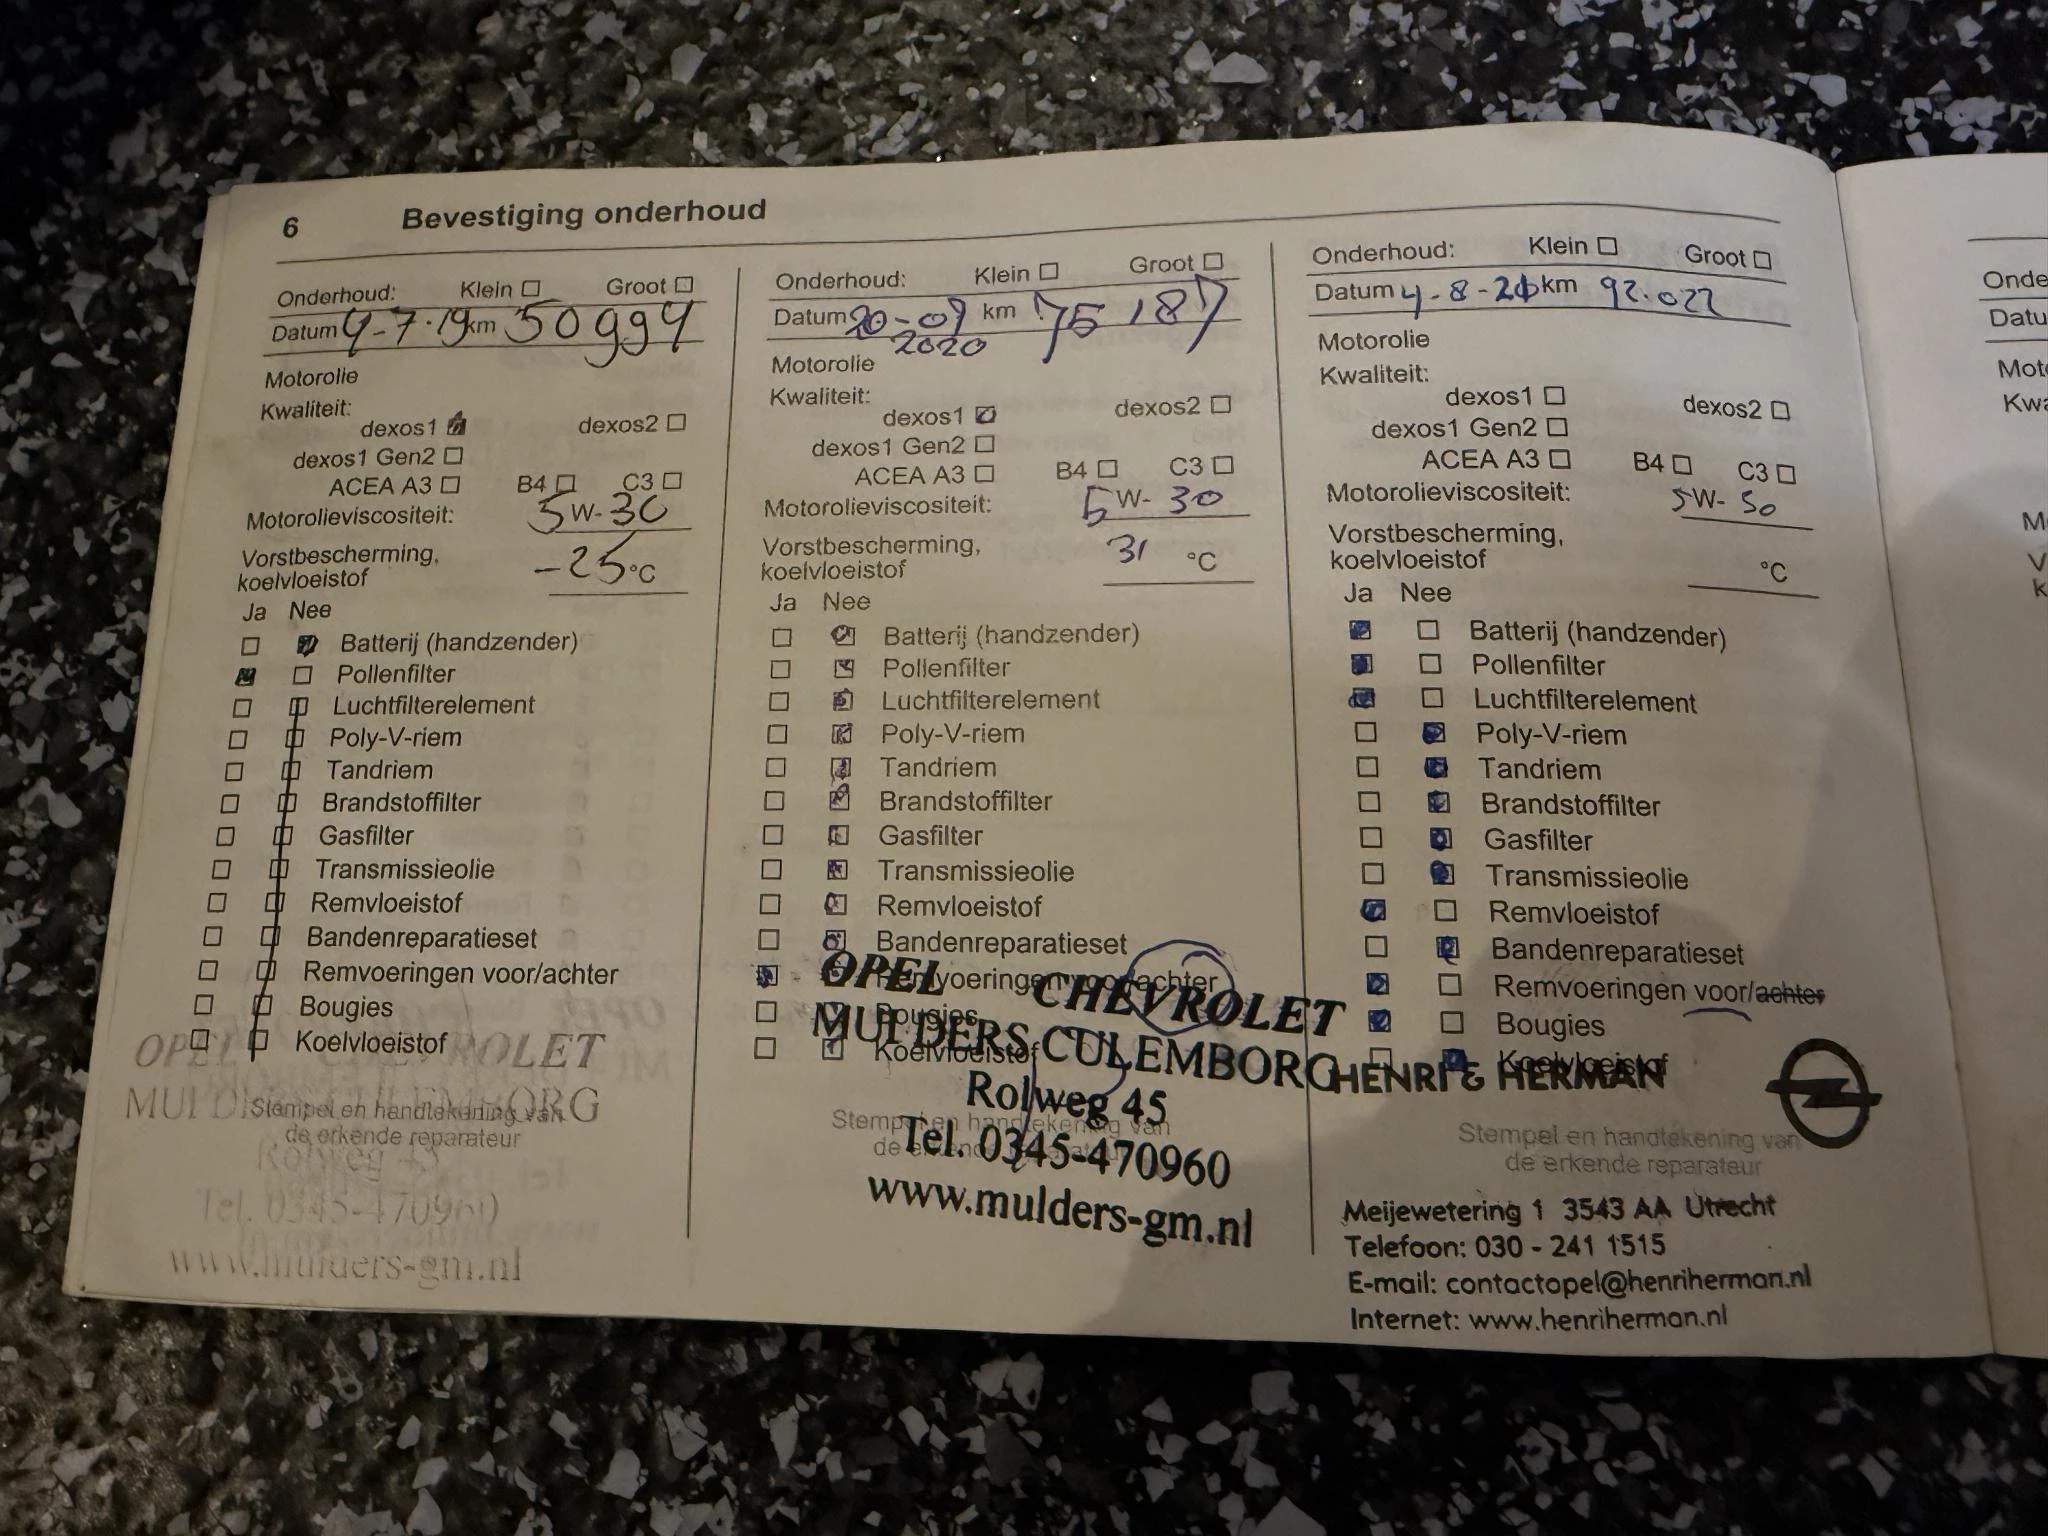 6 Bevestiging onderhoud
Onderhoud: Klein Groot
Datum 4-7-19 km 50994
Motorolie
Kwaliteit:
dexos1 dexos2
dexos1 Gen2
ACEA A3 B4 C3
Motorolieviscositeit: 5W-30
Vorstbescherming,
koelvloeistof -25°C
Ja Nee
Batterij (handzender)
Pollenfilter
Luchtfilterelement
Poly-V-riem
Tandriem
Brandstoffilter
Gasfilter
Transmissieolie
Remvloeistof
Bandenreparatieset
Remvoeringen voor/achter
Bougies
Koelvloeistof
OPEL CHEVROLET
MULDERS CULEMBORG
Stempel en handtekening van
de erkende reparateur
Rolweg 45
Tel. 0345-470960
www.mulders-gm.nl
Onderhoud: Klein Groot
Datum 20-07 km 75187
2020
Motorolie
Kwaliteit:
dexos1 dexos2
dexos1 Gen2
ACEA A3 B4 C3
Motorolieviscositeit: 5W-30
Vorstbescherming,
koelvloeistof 31 °C
Ja Nee
Batterij (handzender)
Pollenfilter
Luchtfilterelement
Poly-V-riem
Tandriem
Brandstoffilter
Gasfilter
Transmissieolie
Remvloeistof
Bandenreparatieset
Remvoeringen voor/achter
Bougies
Koelvloeistof
OPEL CHEVROLET
MULDERS CULEMBORG
Rolweg 45
Stempel en handtekening van
de erkende reparateur
Tel. 0345-470960
www.mulders-gm.nl
Onderhoud: Klein Groot
Datum 4-8-21 km 92.022
Motorolie
Kwaliteit:
dexos1 dexos2
dexos1 Gen2
ACEA A3 B4 C3
Motorolieviscositeit: 5W-30
Vorstbescherming,
koelvloeistof °C
Ja Nee
Batterij (handzender)
Pollenfilter
Luchtfilterelement
Poly-V-riem
Tandriem
Brandstoffilter
Gasfilter
Transmissieolie
Remvloeistof
Bandenreparatieset
Remvoeringen voor/achter
Bougies
Koelvloeistof
HENRI & HERMAN
Stempel en handtekening van
de erkende reparateur
Meijewetering 1 3543 AA Utrecht
Telefoon: 030 - 241 1515
E-mail: contactopel@henriherman.nl
Internet: www.henriherman.nl
Onde
Datu
Moto
Kwa